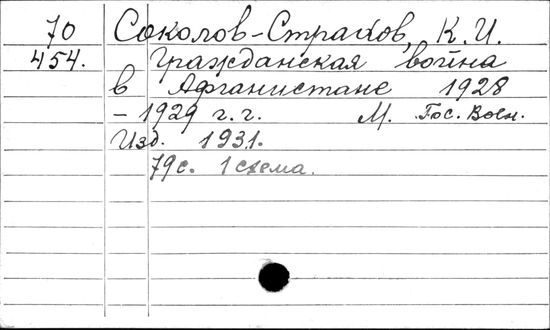 70 Соколов-Страхов, К.И.
454. Гражданская война
в Афганистане 1928
- 1929 г.г. М. Гос. Воен.
Изд. 1931.
79 с. 1 схема.